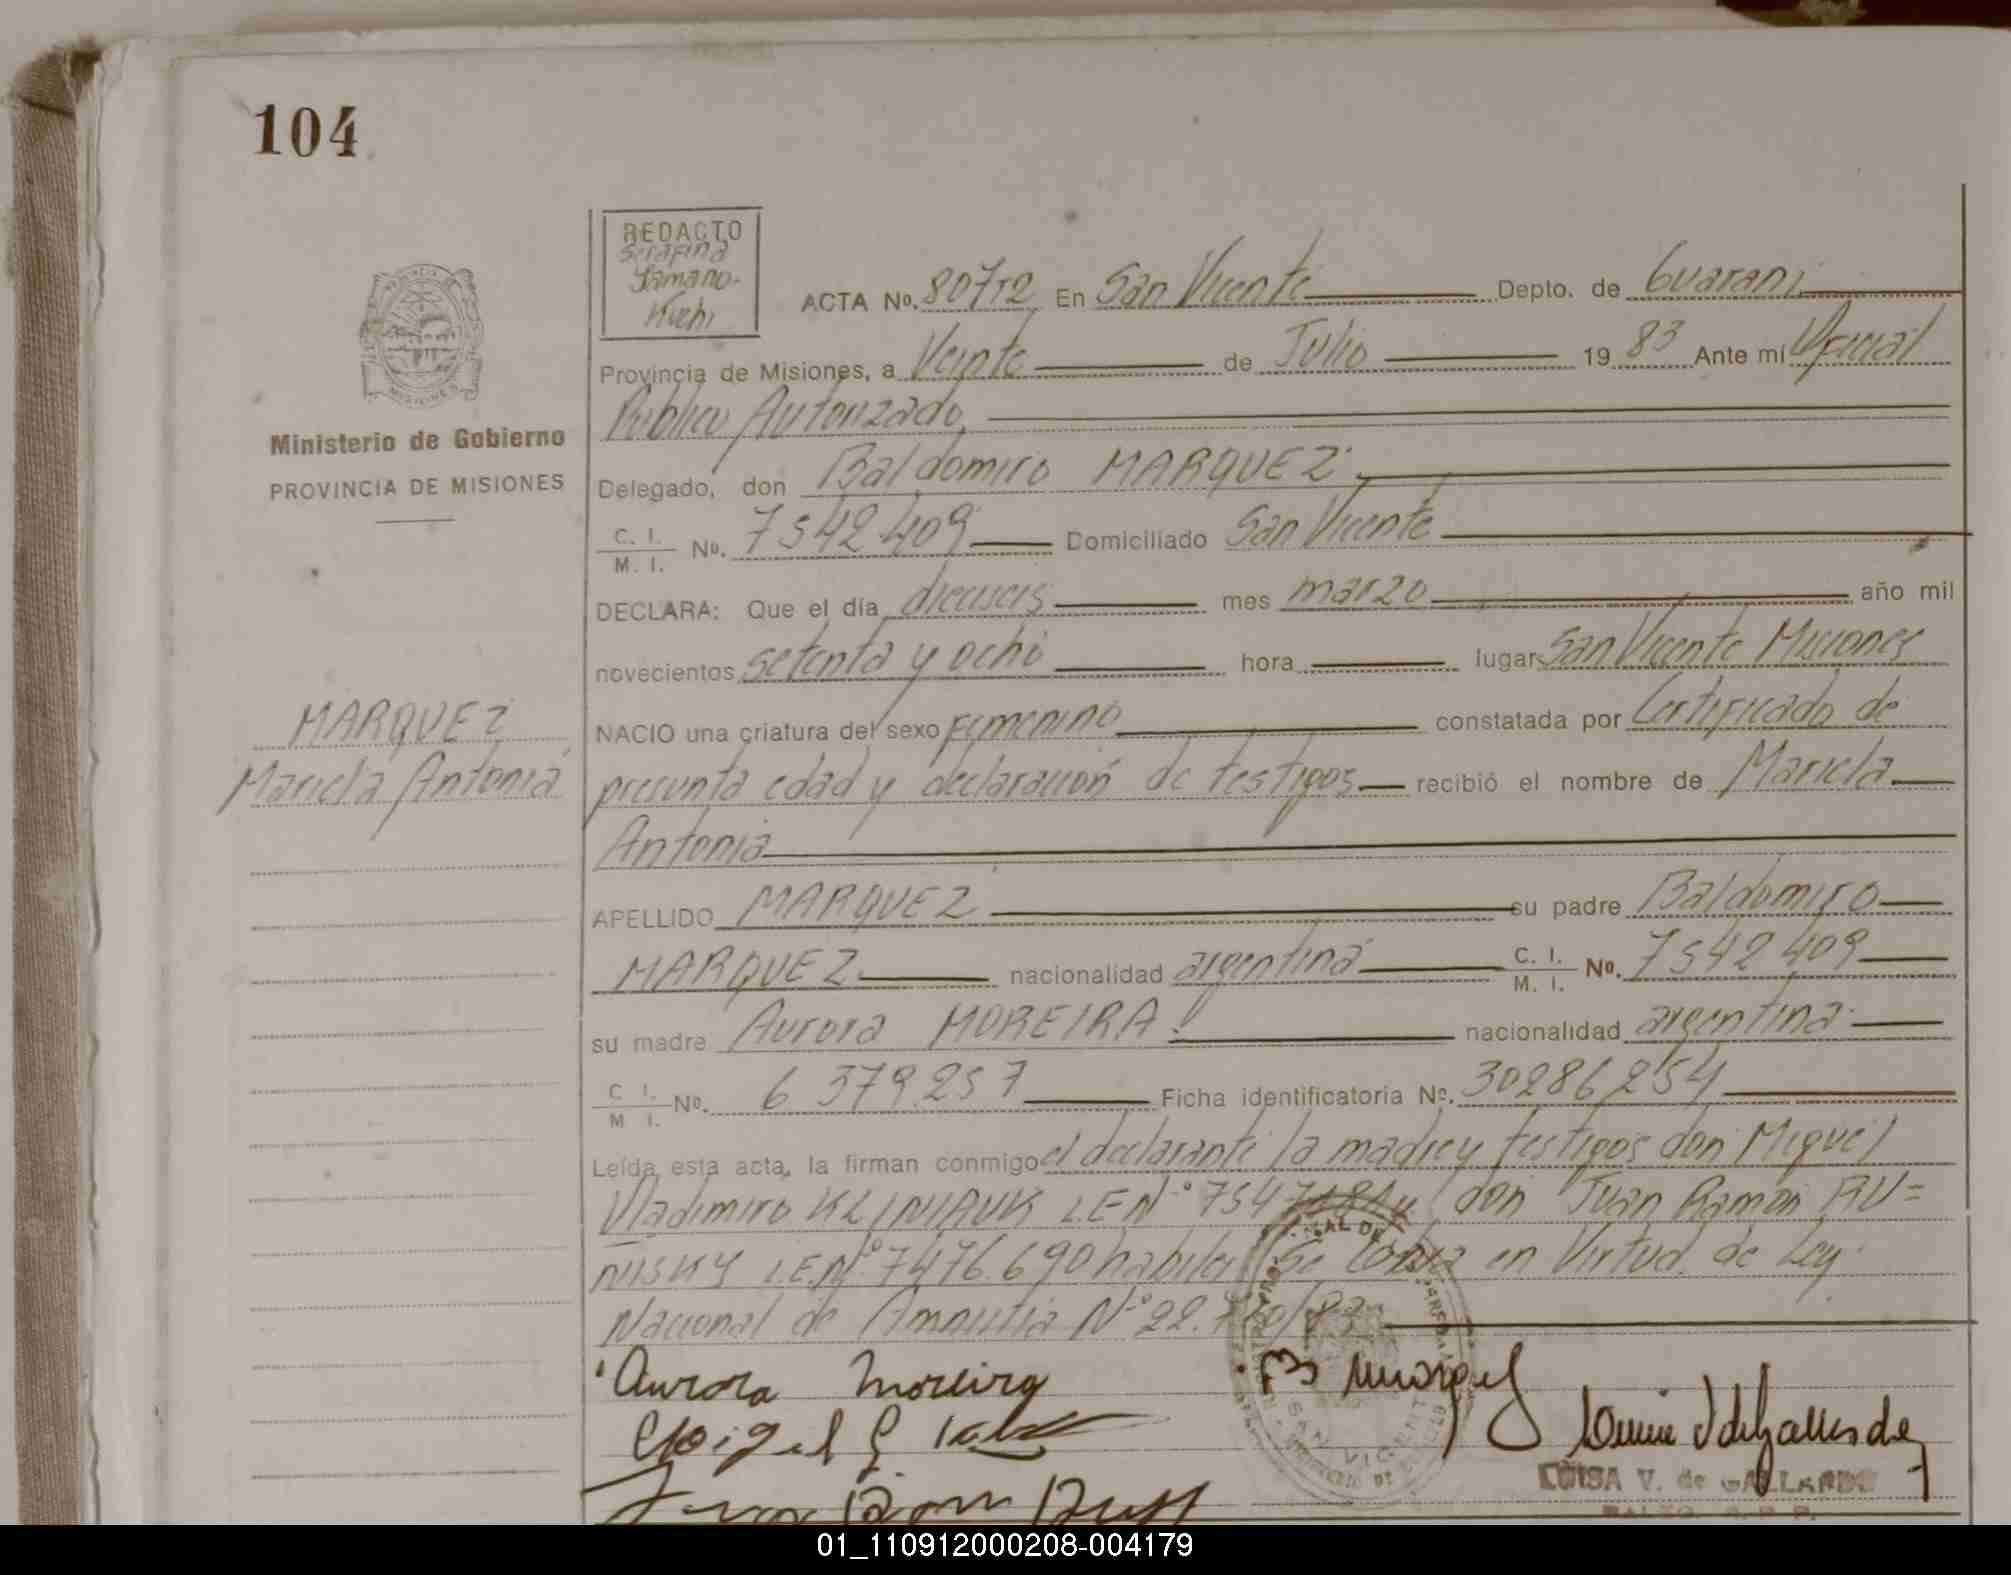 104
REDACTO
Serafina
Yamano-
Kuchi
ACTA No. 807T2 En San Vicente Depto. de Guarani
Provincia de Misiones, a Veinte de Julio 19 83 Ante mí Oficial
Publico Autorizado
Ministerio de Gobierno
PROVINCIA DE MISIONES
Delegado, don Baldomiro MARQUEZ
C. I.
M. I. No. 7542409 Domiciliado San Vicente
DECLARA: Que el día dieciseis mes marzo año mil
novecientos setenta y ocho hora lugar San Vicente Misiones
NACIO una criatura del sexo femenino constatada por Certificado de
presunta edad y declaración de testigos recibió el nombre de Mariela
Antonia
MARQUEZ
Mariela Antonia
APELLIDO MARQUEZ su padre Baldomiro
MARQUEZ nacionalidad argentina C. I.
M. I. No. 7542409
su madre Aurora MOREIRA nacionalidad argentina
C. I.
M. I. No. 6.379.257 Ficha identificatoria No. 30286254
Leída esta acta, la firman conmigo el declarante la madre y testigos don Miguel
Vladimiro KLINIAUK L.E.N° y don Juan Ramon RU=
NISKY L.E.N° 7476.690 Se labra en Virtud de Ley
Nacional de Amnistia N° 22.
Aurora Moreira
B Marquez
SAN VICENTE
LUISA V. de GALLARDO
01_110912000208-004179